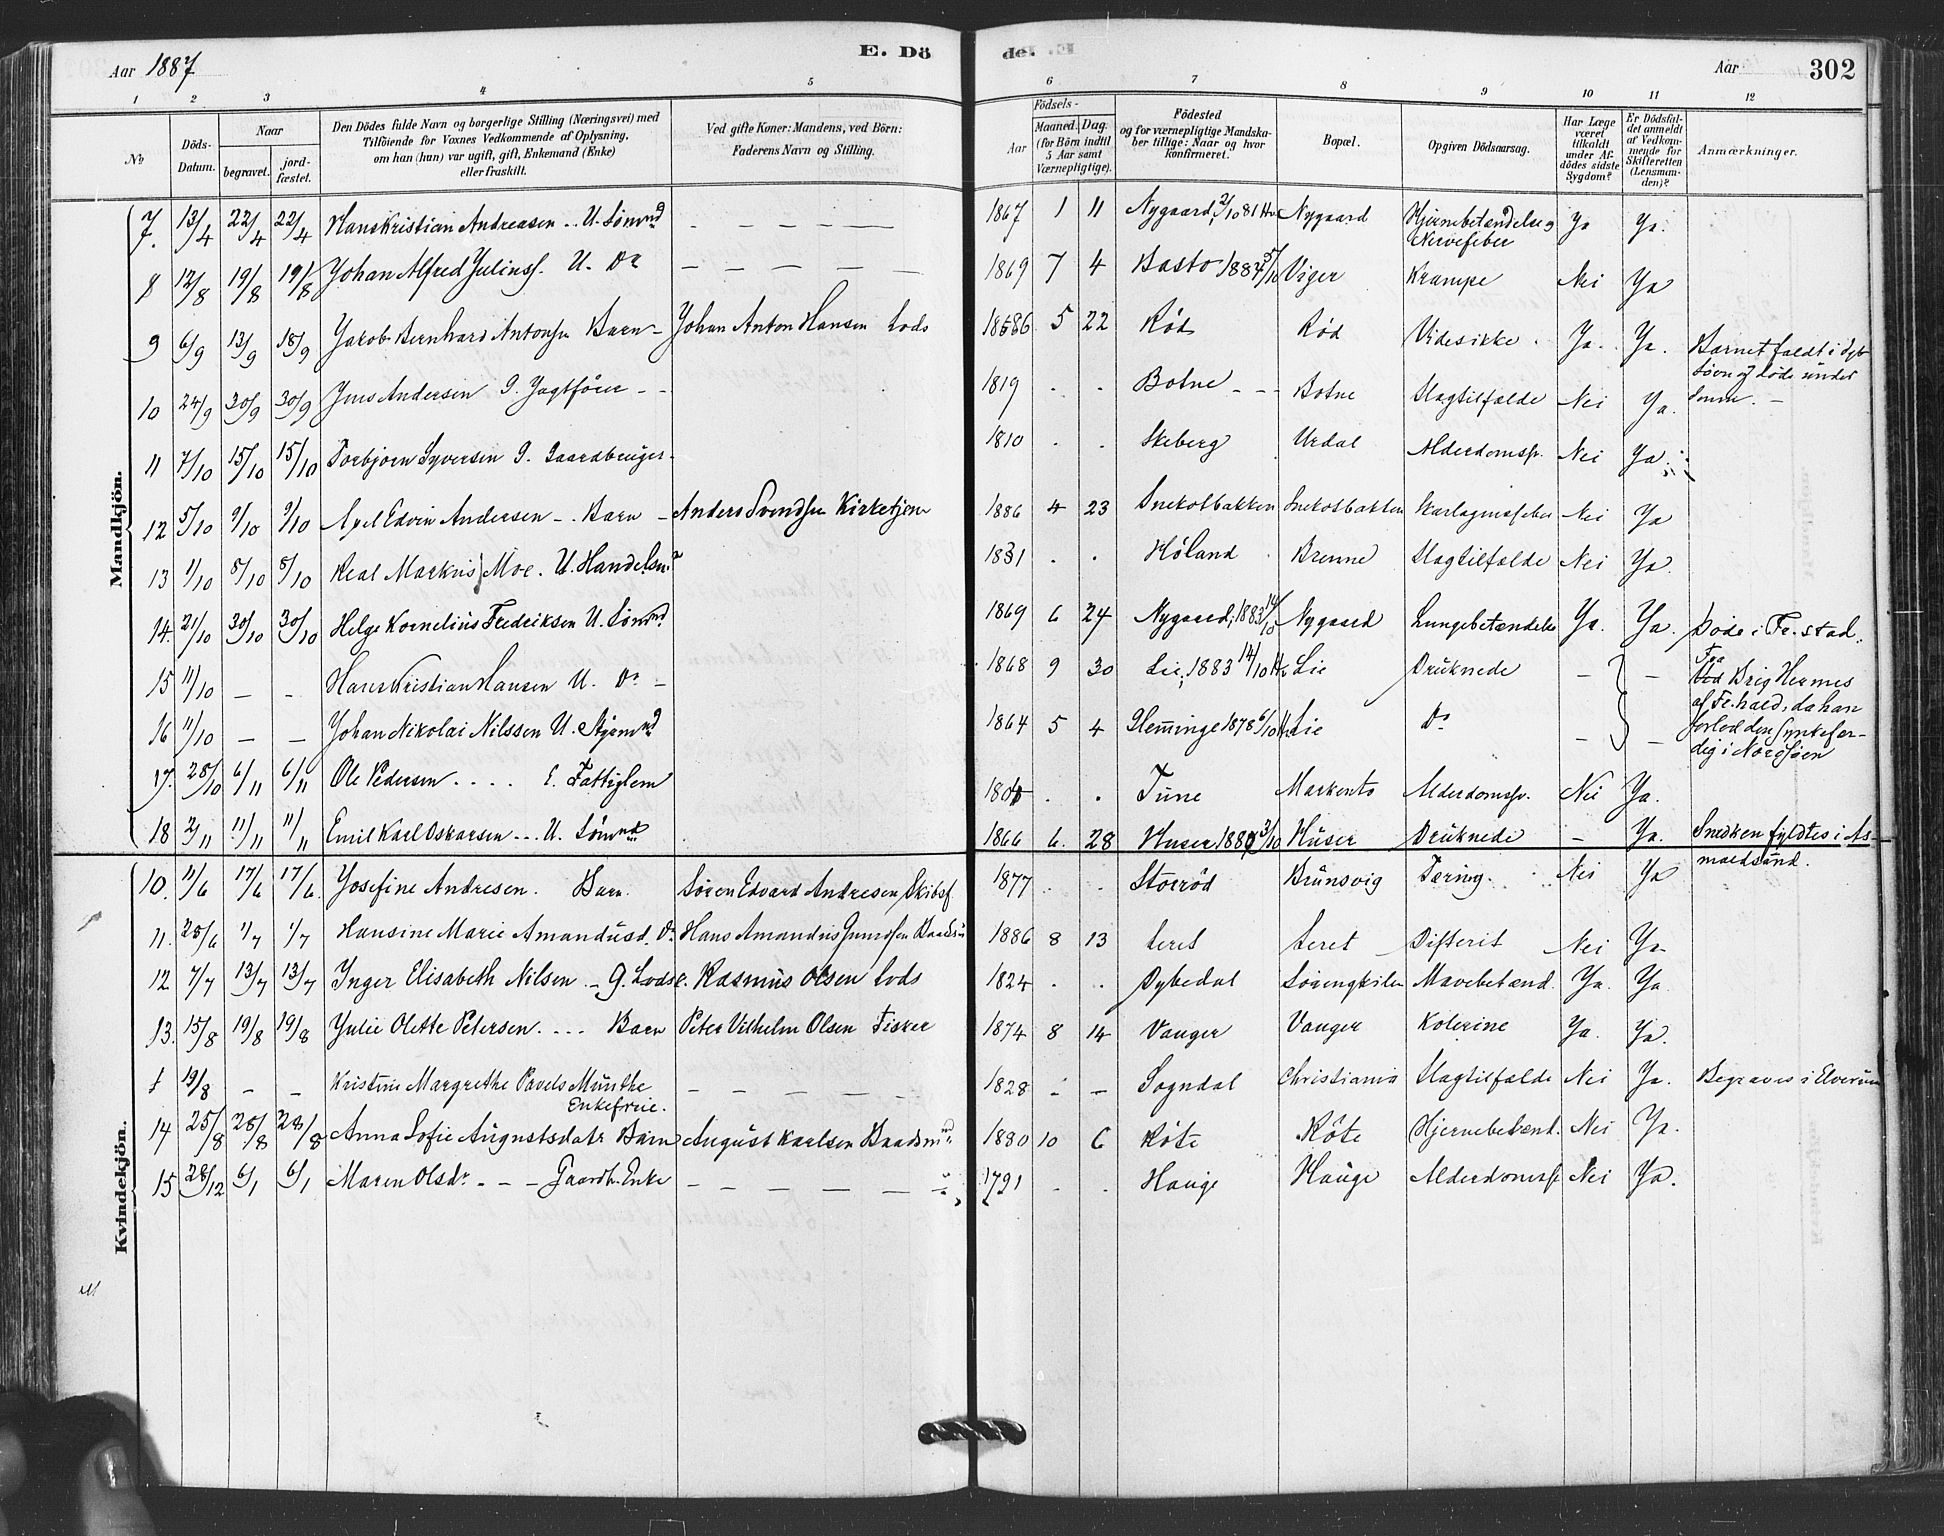 Aar 1887 E. Dö de. Aar 302
1 2 3 4 5 6 7 8 9 10 11 12
No
Döds-Datum.
Naar
begravet.
jord-fæstet.
Den Dödes fulde Navn og borgerlige Stilling (Næringsvei) med
Tilföiende for Voxnes Vedkommende af Oplysning,
om han (hun) var ugift, gift, Enkemand (Enke)
eller fraskilt.
Ved gifte Koner: Mandens, ved Börn:
Faderens Navn og Stilling.
Födsels-
Aar
Maaned. Dag.
(for Börn indtil
5 Aar samt
Værnepligtige).
Födested
og for værnepligtige Mandska-
ber tillige: Naar og hvor
konfirmeret.
Bopæl.
Opgiven Dödsaarsag.
Har Læge
været
tilkaldt
under Af-
dödes sidste
Sygdom?
Er Dödsfal-
det anmeldt
af Vedkom-
mende for
Skifteretten
(Lensman-
den)?
Anmærkninger.
Mandkjön.
7. 13/4 22/4 22/4 Hans Kristian Andreasen .. U. Sömnd — — — — 1867 1 11 Nygaard, 2/10 81 Nygaard Hjernebetændelse og Ja Ja.
Nervefeber
8 12/8 19/8 19/8 Johan Alfred Juliuss. U. Do — — — — 1869 7 4 Basto 1884 5/10 Viger Krampe Nei Ja
9 6/9 13/9 18/9 Jakob Bernhard Antonsn Barn — Johan Anton Hansen Lods 1886 5 22 Röd Röd Videsikke. Ja. Ja. Barnet faldt i
10 24/9 30/9 30/9 Jens Andersen G. Jagtförer - - 1819 . . Botne - - - Botne Slagtilfælde Nei Ja.
11 7/10 15/10 15/10 Torbjörn Syversen G. Gaardbruger. 1810 . . Skeberg Urdal Alderdomssv. Nei Ja.
12 5/10 9/10 9/10 Axel Edvin Andersen - . Barn - Anders Svendsen Kirketjener 1886 4 23 Snekotbakken Snekotbakken Skarlagensfeber Nei Ja
13 1/10 5/10 5/10 Real Markus Moe. U. Handelsmd 1831 . . Höland Brenne Slagtilfælde Nei Ja.
14. 21/10 30/10 30/10 Helge Kornelius Fredriksen U. Sömnd 1869 6 24 Nygaard, 1883 14/10 Nygaard Lungebetændelse Ja. Ja. Döde i Fr.stad.
15 11/10 — - Hans Kristian Hansen U. Do - 1868 9 30 Lie, 1883 14/10 Lie Druknede — — Fra Brig Hermes
af Fr.hald, da han
16 11/10 — — Johan Nikolai Nilssen U. Styrmnd 1864 5 4 Glemminge 1878 6/10 Lie Do — — forlod den synkefær-
dig i Nordsöen
17. 25/10 6/11 6/11 Ole Pedersen . . . . E. Fattiglem . . Tune Markento Alderdomssv. Nei Ja.
18 2/11 11/11 11/11 Emil Karl Oskarsen - - . U. Sömnd 1866 6. 28 Huser 3/10 Huser Druknede — Ja. Snekken fyldtes i As-
malsund.
Kvindekjön.
10. 11/6 17/6 17/6. Josefine Andresen. Barn. Sören Edvard Andresen Skibsf. 1877 . . Storröd Brunsvig Tæring. Nei Ja
11. 25/6 1/7 1/7 Hansine Marie Amandusd. Do Hans Amandus 1886 8 13 Leret Leret Difterit Nei Ja
12 7/7 13/7 13/7 Inger Elisabeth Nilsen - G. Lods. Rasmus Olsen Lods 1824 . . Dybedal Mavebetænd. Ja. Ja.
13. 15/8 19/8 19/8 Julie Olette Petersen. . . . Barn Peter Vilhelm Olsen Fisker 1874 8 14 Vauger Vauger Kolerine Ja. Ja.
19/8 — — Kristine Margrethe Pavels Munthe — — — — 1828 — — Sogndal Christiania Slagtilfælde Nei Ja. Begraves i Elverum
Enkefrue.
14 25/8 28/8 28/8 Anna Sofie Augustsdatr Barn August Karlsen Baadsmnd 1880 10 6 Köte Köte Hjernebetænd. Nei Ja.
15 28/12 6/1 6/1 Maren Olsdr - - - Gaardbr. Enke — — — — 1791 . . Hauge Hauge Alderdomssv. Nei Ja.